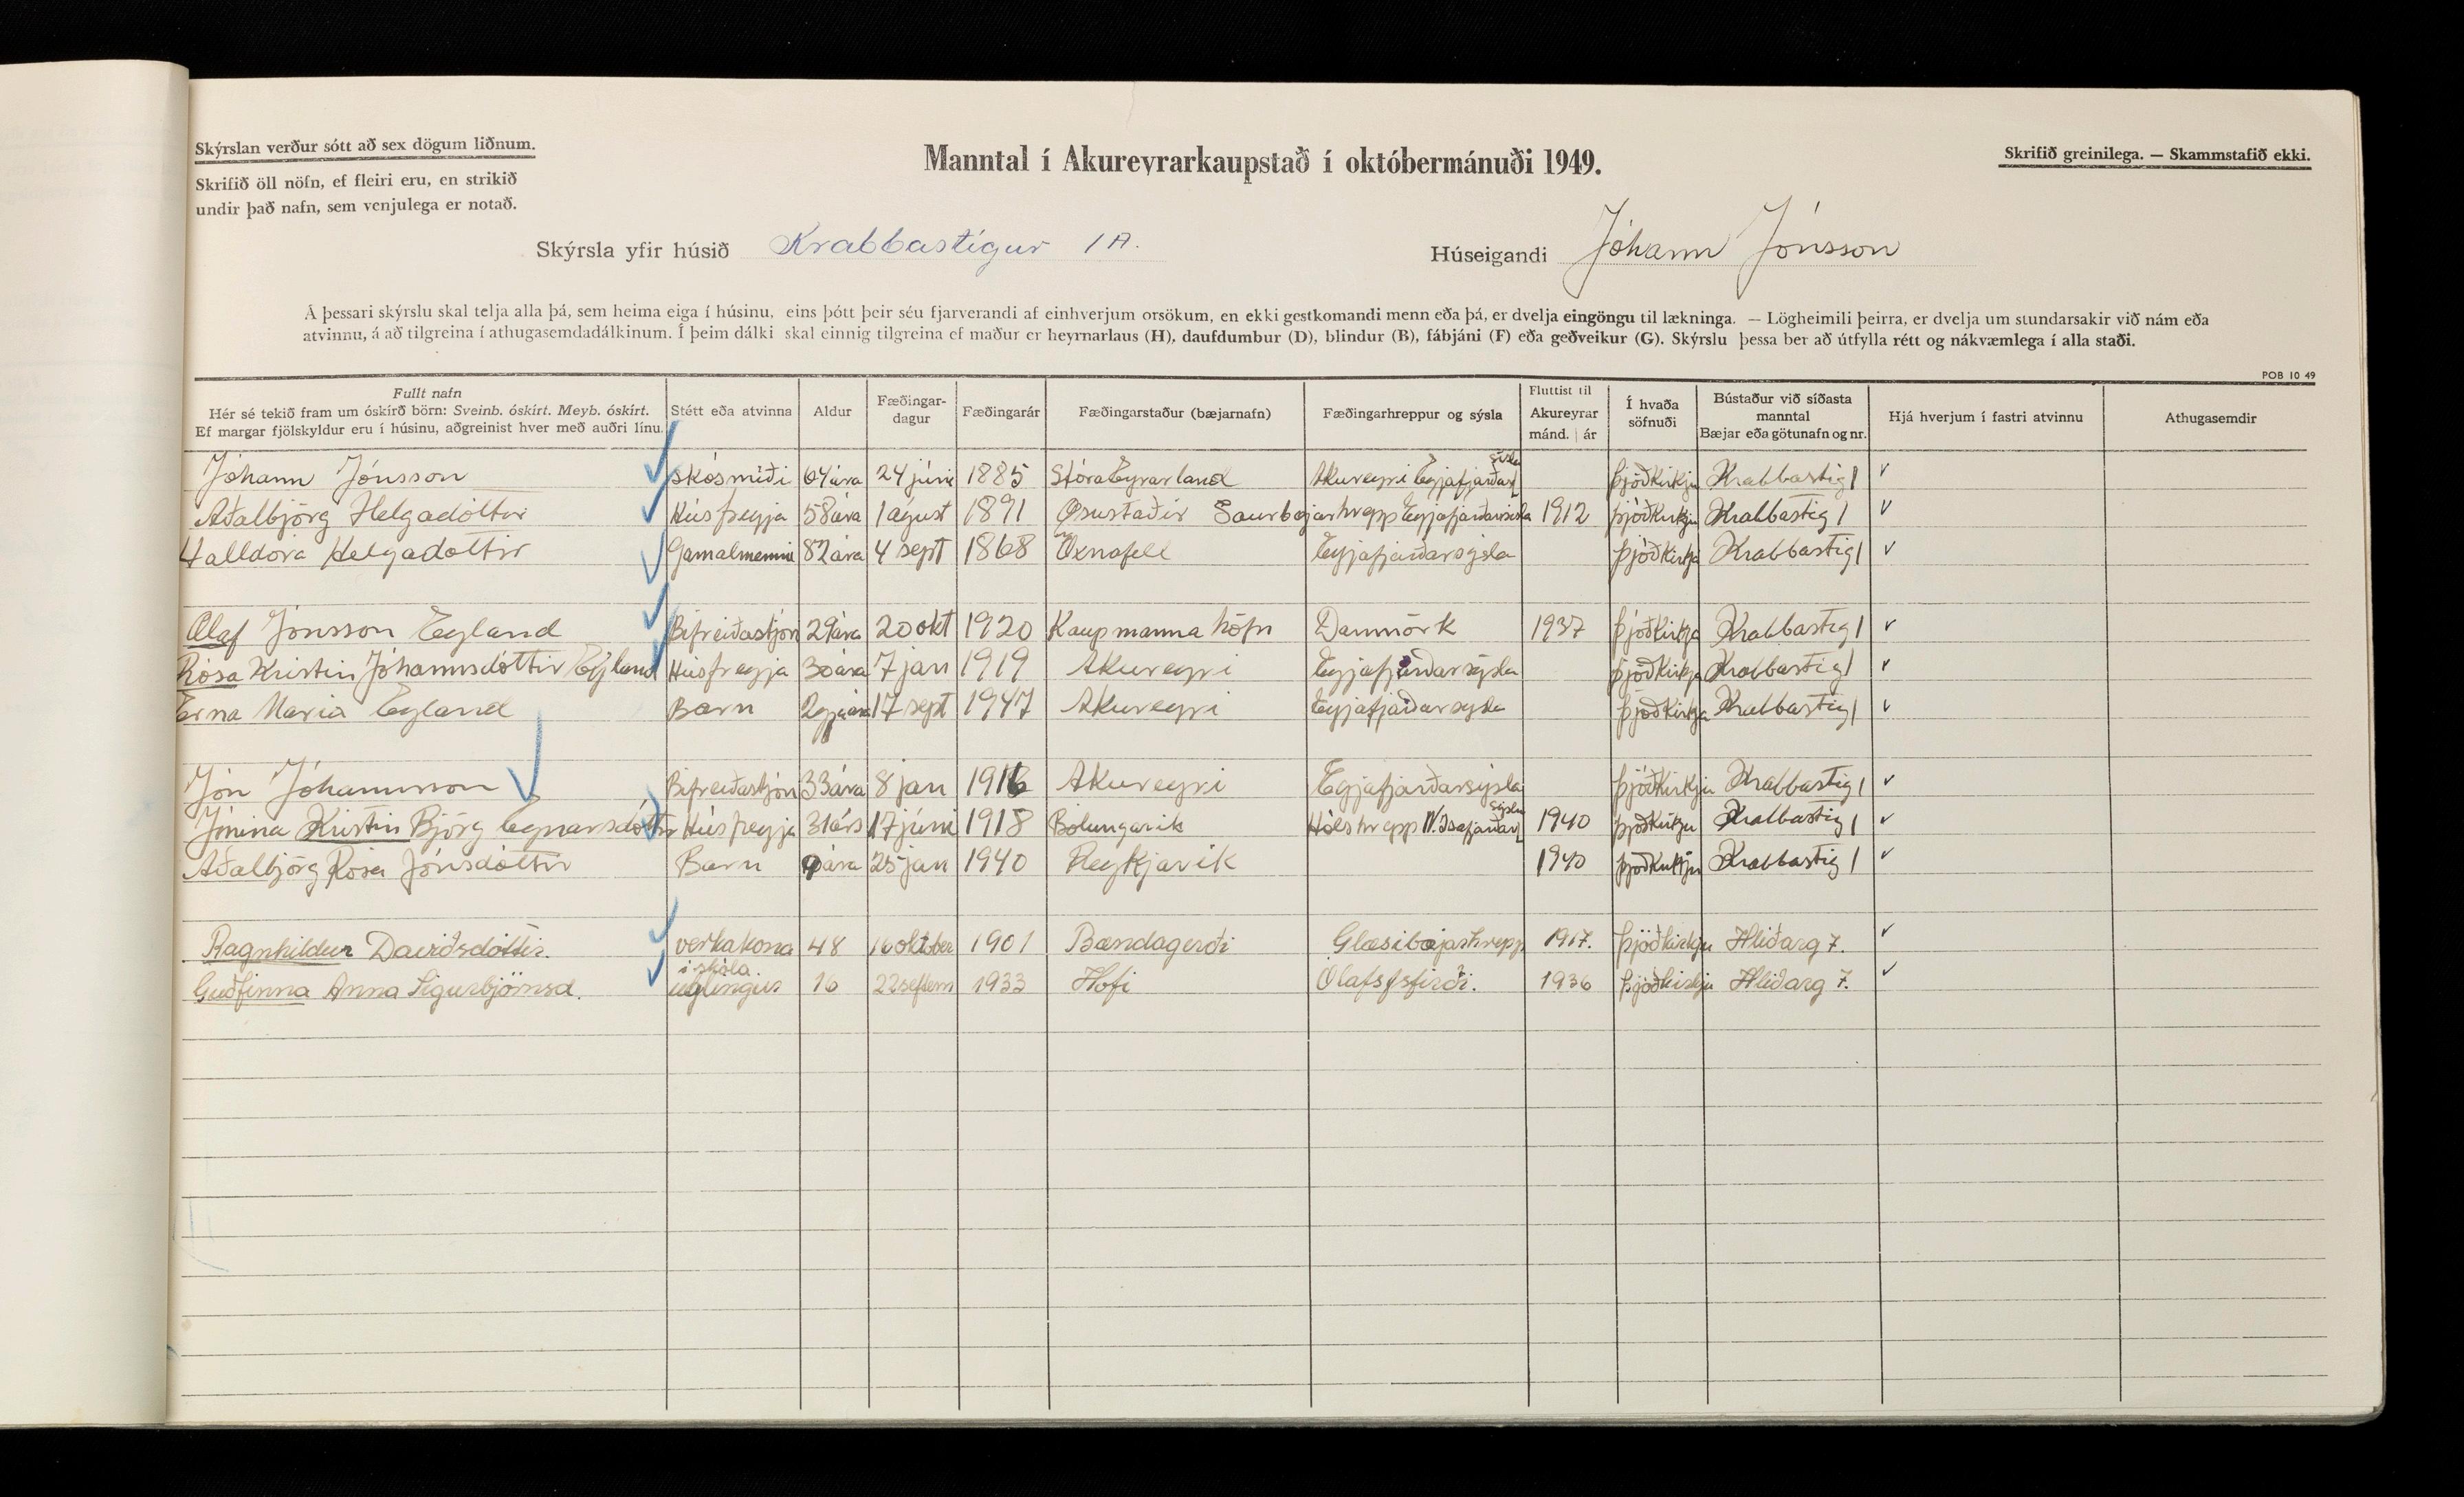 Skýrslan verður sótt að sex dögum liðnum.
Skrifið öll nöfn, ef fleiri eru, en strikið
undir það nafn, sem venjulega er notað.
Manntal í Akureyrarkaupstað í októbermánuði 1949.
Skrifið greinilega. — Skammstafið ekki.
Skýrsla yfir húsið Krabbastígur 1A.
Húseigandi Jóhann Jónsson
Á þessari skýrslu skal telja alla þá, sem heima eiga í húsinu, eins þótt þeir séu fjarverandi af einhverjum orsökum, en ekki gestkomandi menn eða þá, er dvelja eingöngu til lækninga. — Lögheimili þeirra, er dvelja um stundarsakir við nám eða
atvinnu, á að tilgreina í athugasemdadálkinum. Í þeim dálki skal einnig tilgreina ef maður er heyrnarlaus (H), daufdumbur (D), blindur (B), fábjáni (F) eða geðveikur (G). Skýrslu þessa ber að útfylla rétt og nákvæmlega í alla staði.
POB 10 49
Fullt nafn
Hér sé tekið fram um óskírð börn: Sveinb. óskírt. Meyb. óskírt.
Ef margar fjölskyldur eru í húsinu, aðgreinist hver með auðri línu.
Stétt eða atvinna
Aldur
Fæðingar-
dagur
Fæðingarár
Fæðingarstaður (bæjarnafn)
Fæðingarhreppur og sýsla
Fluttist til
Akureyrar
mánd. | ár
Í hvaða
söfnuði
Bústaður við síðasta
manntal
Bæjar eða götunafn og nr.
Hjá hverjum í fastri atvinnu
Athugasemdir
Jóhann Jónsson skósmiði 64 ára 24 júni 1885 Stóra Eyrarland Akureyri Eyjafjarðar sýsla þjóðkirkju Krabbastig 1 v
Aðalbjörg Helgadóttir Húsfreyja 58 ára 1 ágúst 1891 Ösustaðir Saurbæjarhrepp Eyjafjarðarsísla 1912 þjóðkirkju Krabbastig 1 v
Halldóra Helgadóttir Gamalmenni 82 ára 4 sept 1868 Öxnafell Eyjafjarðarsýsla þjóðkirkja Krabbastig 1 v
Olaf Jónsson Eyland Bifreiðastjóri 29 ára 20 okt 1920 Kaupmanna höfn Danmörk 1937 þjóðkirkja Krabbastig 1 v
Rósa Kristín Jóhannsdóttir Eyland Húsfreyja 30 ára 7 jan 1919 Akureyri Eyjafjarðarsýsla þjóðkirkja Krabbastig 1 v
Erna María Eyland Barn 2gja ára 17 sept 1947 Akureyri Eyjafjarðarsýsla þjóðkirkja Krabbastig 1 v
Jón Jóhannsson Bifreiðastjóri 33 ára 8 jan 1916 Akureyri Eyjafjarðarsýsla þjóðkirkju Krabbastig 1 v
Jónína Kristín Björg Egnarsdóttir Húsfreyja 31 árs 17 júni 1918 Bolungarik Hólshrepp N. Ísafjarðar sýslu 1940 þjóðkirkju Krabbastig 1 v
Aðalbjörg Rósa Jónsdóttir Barn 9 ára 25 jan 1940 Reykjavík 1940 þjóðkirkju Krabbastig 1 v
Ragnhildur Davíðsdóttir. verkakona 48 16 október 1901 Bændagerði Glæsibæjarhrepp 1917. þjóðkirkju Hliðarg 7. v
í skóla.
Guðfinna Anna Sigurbjörnsd. unglingur 16 22 septem 1933 Hofi Ólafsfsfirði. 1936 þjóðkirkju Hliðarg 7. v